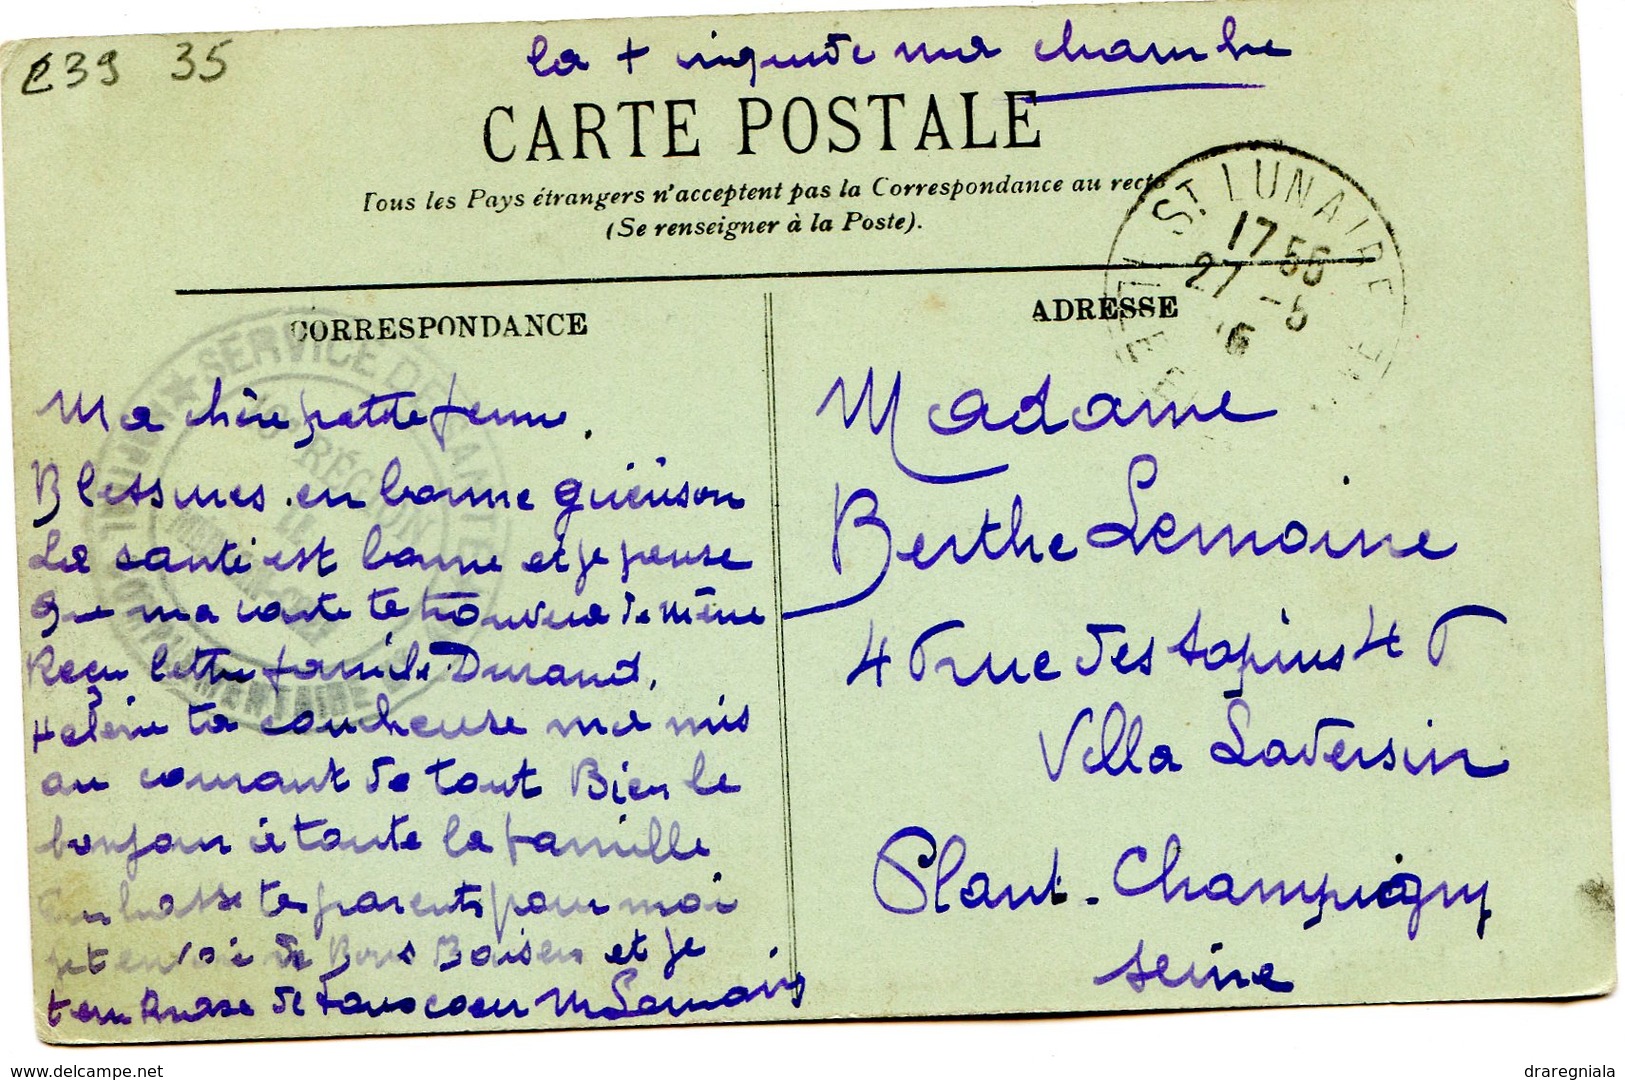 e39 35
la + indique ma chambre
CARTE POSTALE
Tous les Pays étrangers n'acceptent pas la Correspondance au recto
(Se renseigner à la Poste).
ST LUNAIRE
17 55
27 -5
16
CORRESPONDANCE
SERVICE DE SANTÉ
10e RÉGION
HOPITAL COMPLEMENTAIRE
Ma chère petite femme.
Blessures en bonne guérison
La santé est bonne et je pense
que ma carte te trouvera de même
Reçu lettre famille Durand,
Hélène ta coucheuse m'a mis
au courant de tout Bien le
bonjour à toute la famille
Embrasse tes parents pour moi
je t'envoie de Bons Baisers et je
t'embrasse de tous coeur M Lemoine
ADRESSE
Madame
Berthe Lemoine
4 T rue des tapins 4 T
Villa Laversin
Plant-Champigny
seine
delcampe.net
draregniala